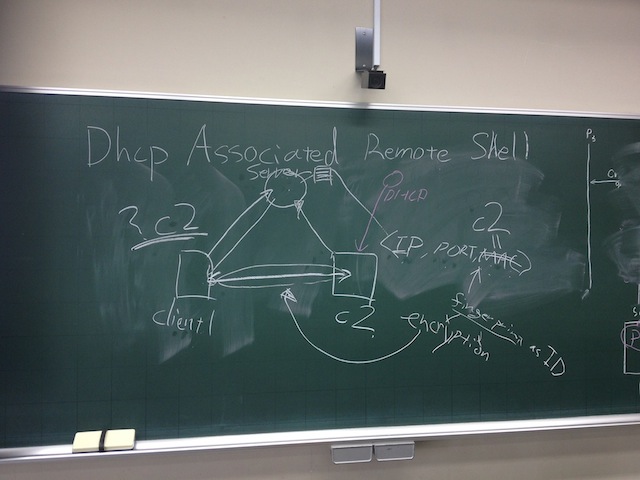 Dhcp Associated Remote Shell
Server
DHCP
? C2
C2
<IP, PORT, MAC>
client1
C2
encryption
fingerprint
as ID
Ps